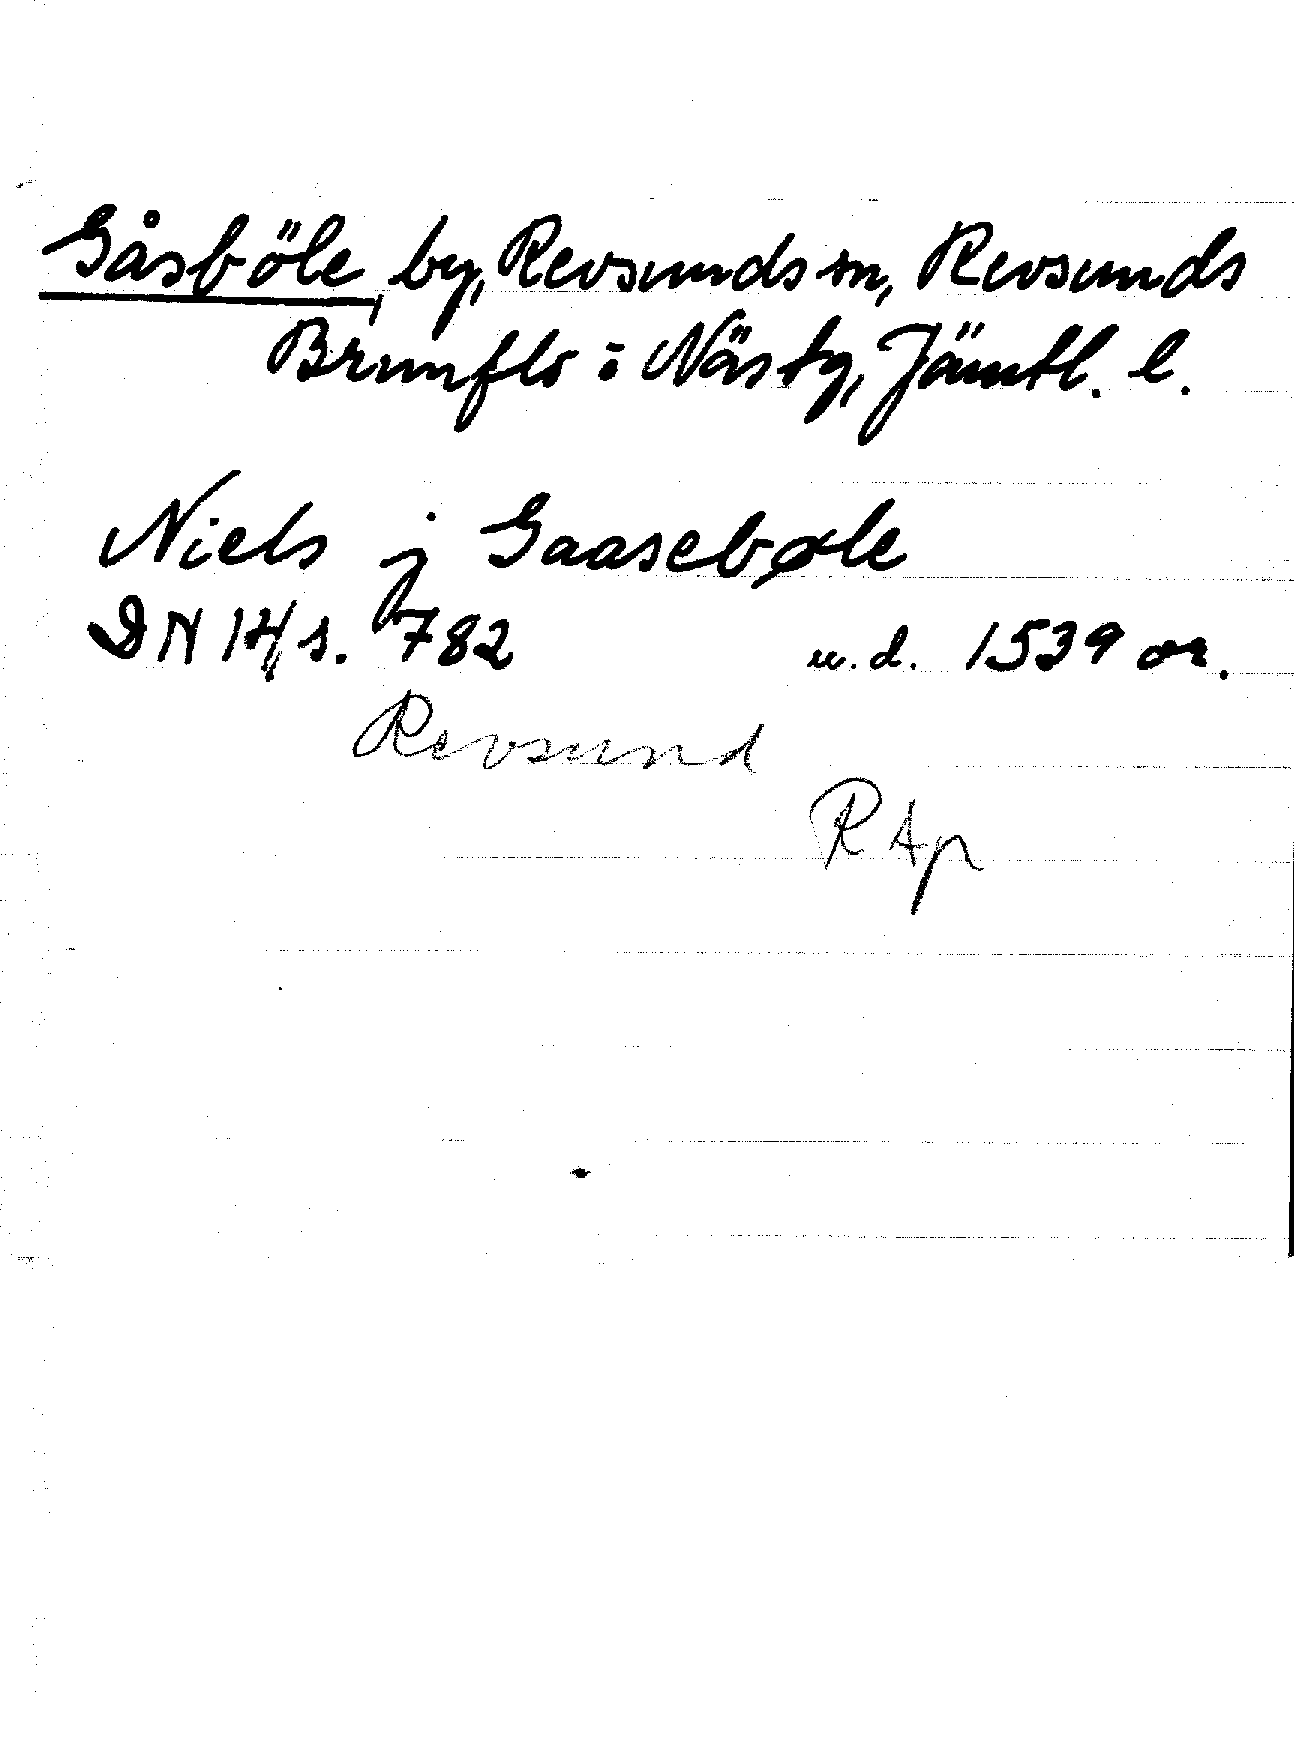 Gåsböle, by, Revsunds sn, Revsunds
Brunflo o Näs tg, Jämtl. l.
Niels j Gaasebøle
DN 14/s. 782 u. d. 1539 or.
Revsund
RAp